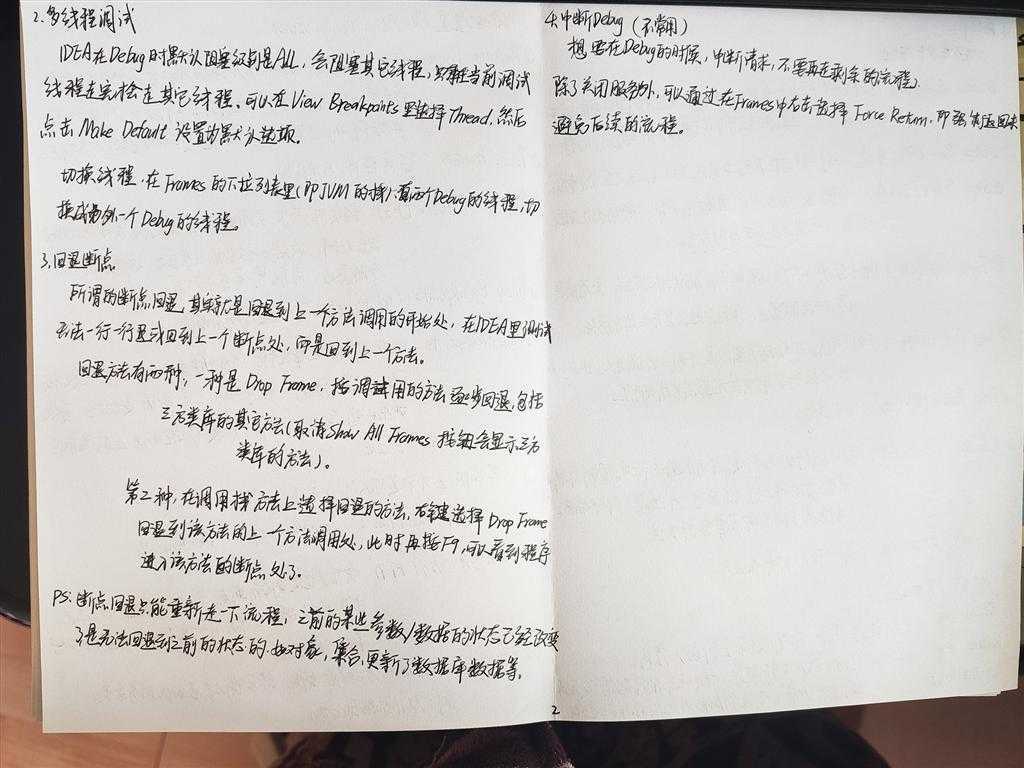 2.多线程调试
IDEA在Debug时默认阻塞级别是ALL,会阻塞其它线程,只有在当前调试
线程走完才会走其它线程。可以在View Breakpoints里选择Thread,然后
点击Make Default设置为默认选项。
切换线程,在Frames的下拉列表里(即JVM的栈),有两个Debug的线程,切
换成另外一个Debug的线程。
3.回退断点
所谓的断点回退,其实就是回退到上一个方法调用的开始处,在IDEA里测试
无法一行一行退或回到上一个断点处,而是回到上一个方法。
回退方法有两种,一种是Drop Frame,按调用的方法逐步回退,包括
三方类库的其它方法(取消Show All Frames按钮会显示三方
类库的方法)。
第二种,在调用栈方法上选择回退的方法,右键选择Drop Frame
回退到该方法的上一个方法调用处,此时再按F9,可以看到程序
进入该方法的断点处了。
PS:断点回退只能重新走一下流程,之前的某些参数/数据的状态已经改变
了是无法回退到之前的状态的,如对象,集合,更新了数据库数据等。
4.中断Debug(不常用)
想要在Debug的时候,中断请求,不要再走剩余的流程,
除了关闭服务外,可以通过在Frames中右击选择Force Return,即强制返回来
避免后续的流程。
2